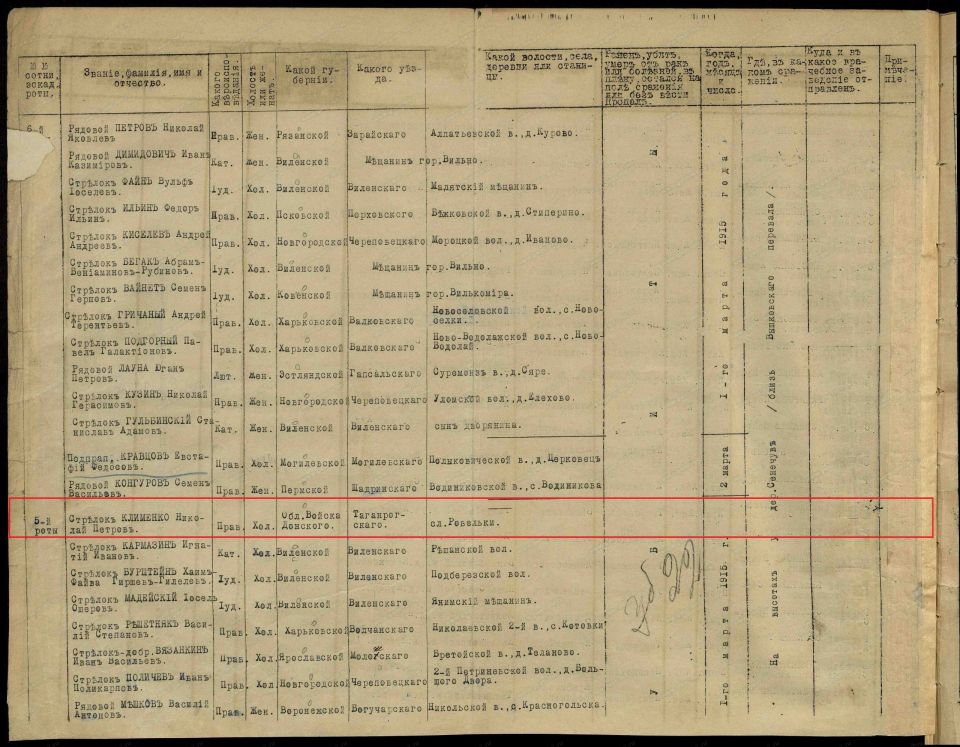 № № сотни, эскад. роты,
Званіе, фамилія, имя и отчество.
Какого вѣроиспо-вѣданія.
Холостъ или же-натъ.
Какой гу-берніи.
Какого уѣз-да.
Какой волости, села, деревни или стани-цы.
Раненъ, убитъ, умеръ отъ ранъ или болѣзней, въ плѣну, остался на полѣ сраженія или безъ вѣсти пропалъ.
Когда, годъ, мѣсяцъ и число.
Гдѣ, въ ка-комъ сра-женіи.
Куда и въ какое вра-чебное за-веденіе от-правленъ.
При-мѣча-ніе.
6-й
Рядовой ПЕТРОВЪ Николай Яковлевъ Прав. Жен. Рязанской Зарайскаго Алпатьевской в., д. Курово.
Рядовой ДИМИДОВИЧЪ Иванъ Казиміровъ. Кат. Жен. Виленской Мѣщанинъ гор. Вильно.
Стрѣлокъ ФАЙНЪ Вульфъ Іоселевъ. Іуд. Хол. Виленской Виленскаго Малятскій мѣщанинъ.
Стрѣлокъ ИЛЬИНЪ Федоръ Ильинъ. Прав. Хол. Псковской Порховскаго Вѣжковской в., д. Стиперино.
Стрѣлокъ КИСЕЛЕВЪ Андрей Андреевъ. Прав. Хол. Новгородской Череповецкаго Мороцкой вол., д. Иваново.
Стрѣлокъ БЕГАКЪ Абрамъ-Веніаминовъ-Рубиновъ. Іуд. Хол. Виленской Мѣщанинъ гор. Вильно.
Стрѣлокъ ВАЙНЕТЪ Семенъ Герцовъ. Іуд. Хол. Ковенской Мѣщанинъ гор. Вилькоміра.
Стрѣлокъ ГРИЧАНЫЙ Андрей Терентьевъ. Прав. Хол. Харьковской Валковскаго Новоселовской вол., с. Ново-селки.
Стрѣлокъ ПОДГОРНЫЙ Па-велъ Галактіоновъ. Прав. Хол. Харьковской Валковскаго Ново-Водолажской вол., с. Ново-Водолай.
Рядовой ЛАУНА Юганъ Петровъ. Лют. Жен. Эстляндской Гапсальскаго Суремоизъ в., д. Сяре.
Стрѣлокъ КУЗИНЪ Николай Герасимовъ. Прав. Жен. Новгородской Череповецкаго Уломской вол., д. Клехово.
Стрѣлокъ ГУЛЬБИНСКІЙ Ста-ниславъ Адамовъ. Кат. Жен. Виленской Виленскаго сынъ дворянина.
Подпрап. КРАВЦОВЪ Евста-фій Федосовъ. Прав. Хол. Могилевской Могилевскаго Полыковической в., д. Церковецъ
Рядовой КОНГУРОВЪ Семенъ Васильевъ. Прав. Жен. Пермской Шадринскаго Водениковской в., с. Водиникова
5-й роты Стрѣлокъ КЛИМЕНКО Нико-лай Петровъ. Прав. Хол. Обл. Войска Донского. Таганрог-скаго. сл. Ровельки.
Стрѣлокъ КАРМАЗИНЪ Игна-тій Ивановъ. Кат. Хол. Виленской Виленскаго Рѣшанской вол.
Стрѣлокъ БУРШТЕЙНЪ Хаимъ-Файва Гиршевъ-Гилелевъ. Іуд. Хол. Виленской Виленскаго Подберезской вол.
Стрѣлокъ МАДЕЙСКІЙ Іосель Ошеровъ. Іуд. Хол. Виленской Виленскаго Янимскій мѣщанинъ.
Стрѣлокъ РѢШЕТНЯКЪ Васи-лій Степановъ. Прав. Хол. Харьковской Волчанскаго Николаевской 2-й в., с. Котовки
Стрѣлокъ-добр. ВЯЗАНКИНЪ Иванъ Васильевъ. Прав. Хол. Ярославской Моложскаго Бретойской в., д. Теланово.
Стрѣлокъ ПОЛИЧЕВЪ Иванъ Поликарповъ. Прав. Хол. Новгородской Череповецкаго 2-й Петриневской вол., д. Боль-шого Двора.
Рядовой МѢШКОВЪ Василій Антоновъ. Прав. Жен. Воронежской Богучарскаго Никольской в., с. Красногольска.
У Б И Т Ы
1-го марта 1915 года.
2 марта
1-го марта 1915 г.
На высотахъ у дер. Сенечувъ /близь Вышковскаго перевала/.